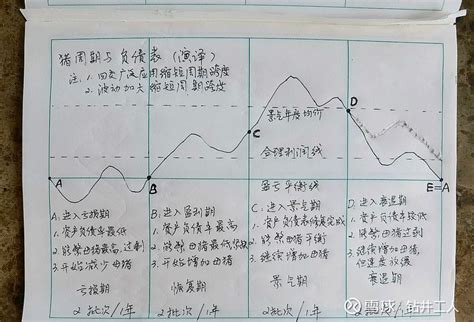 猪周期与负债表（演译）
注：1. 回交广泛应用缩短周期跨度
2. 波动加大缩短周期跨度
景气年度均价
合理利润线
盈亏平衡线
A B C D E=A
A：进入亏损期
1. 资产负债率最低
2. 能繁母猪最高，过剩
3. 开始减少母猪
亏损期
2批次/1年
B：进入盈利期
1. 资产负债率最高
2. 能繁母猪最低
3. 开始增加母猪
恢复期
2批次/1年
C：进入景气期
1. 资产负债表修复完成
2. 能繁母猪平衡
3. 继续增加母猪
景气期
2批次/1年
D：进入衰退期
1. 资产负债率较低
2. 能繁母猪过剩
3. 继续增加母猪，
但速度放缓
衰退期
2批次/1年
雪球：钻井工人